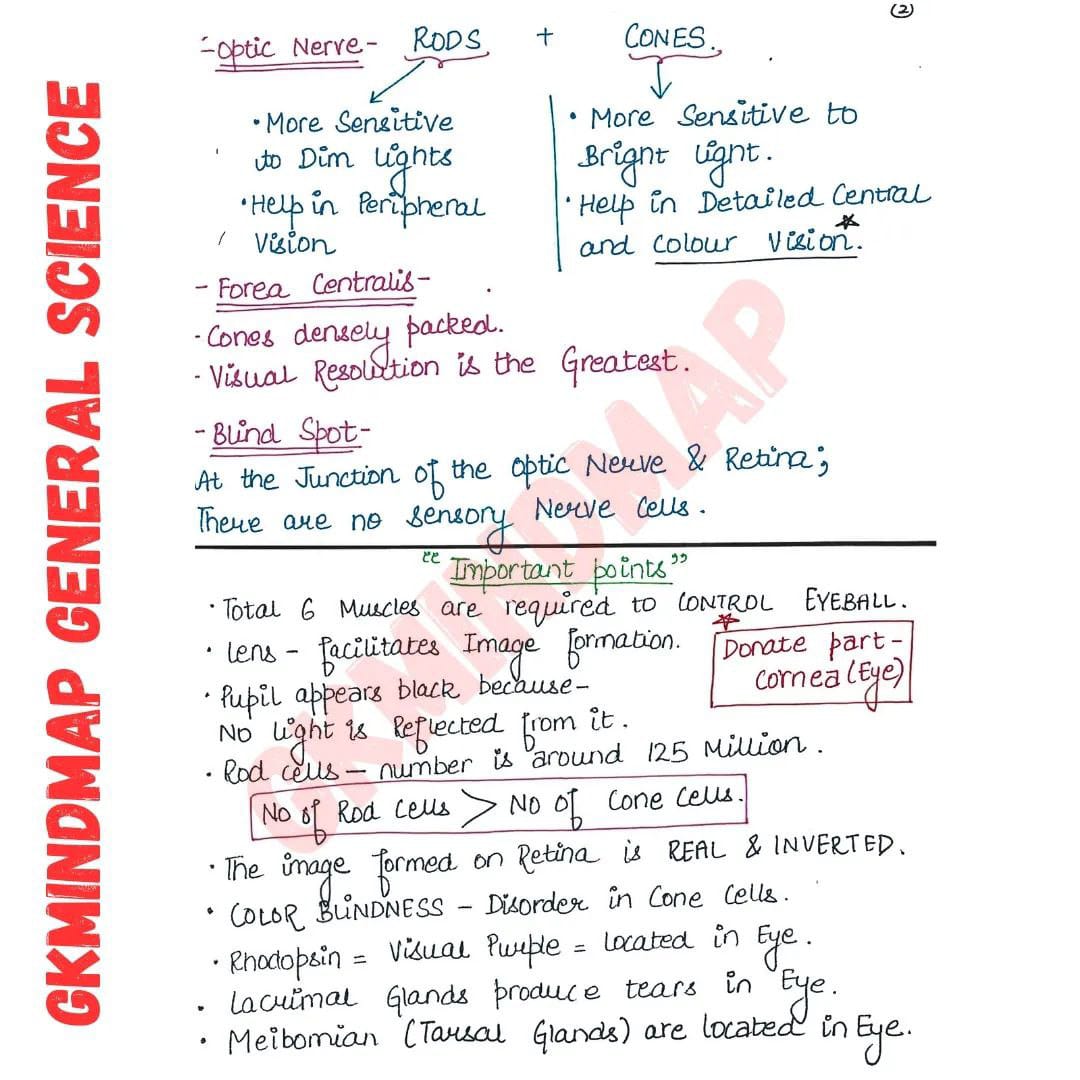 (2)
GKMINDMAP GENERAL SCIENCE
- Optic Nerve - RODS + CONES.
• More Sensitive to Dim Lights
• Help in Peripheral Vision
• More Sensitive to Bright Light.
• Help in Detailed Central and Colour Vision.
- Forea Centralis -
- Cones densely packed.
- Visual Resolution is the Greatest.
- Blind Spot -
At the Junction of the Optic Nerve & Retina;
There are no Sensory Nerve Cells.
"Important points"
• Total 6 Muscles are required to CONTROL EYEBALL.
• Lens - facilitates Image formation.
Donate part -
Cornea (Eye)
• Pupil appears black because -
No Light is Reflected from it.
• Rod cells - number is around 125 Million.
No of Rod Cells > No of Cone Cells.
• The image formed on Retina is REAL & INVERTED.
• COLOR BLINDNESS - Disorder in Cone Cells.
• Rhodopsin = Visual Purple = located in Eye.
• Lacrimal Glands produce tears in Eye.
• Meibomian (Tarsal Glands) are located in Eye.
GKMINDMAP